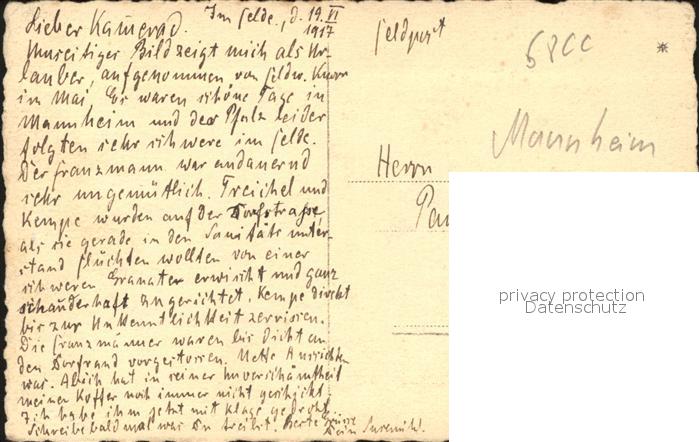 Im Felde, d. 19. VI
1917
Lieber Kamerad.
Umseitiges Bild zeigt mich als Ur-
lauber, aufgenommen von Feldw. Knorr
im Mai. Es waren schöne Tage in
Mannheim und der Pfalz leider
folgten sehr schwere im Felde.
Der Franzmann war andauernd
sehr ungemütlich. Treichel und
Kempe wurden auf der Dorfstrasse,
als sie gerade in den Sanitäts unter-
stand flüchten wollten von einer
schweren Granate erwischt und ganz
schauderhaft zugerichtet. Kempe direkt
bis zur Unkenntlichkeit zerrissen.
Die Franzmänner waren bis dicht an
den Dorfrand vorgestossen. Nette Aussichten
war. Albich hat in seiner Unverschämtheit
meinen Koffer noch immer nicht geschickt.
Ich habe ihm jetzt mit Klage gedroht.
Schreibe bald mal was Du treibst. Herzl. Grüsse
Dein
Feldpost
58CC
*
Mannheim
Herrn
privacy protection
Datenschutz